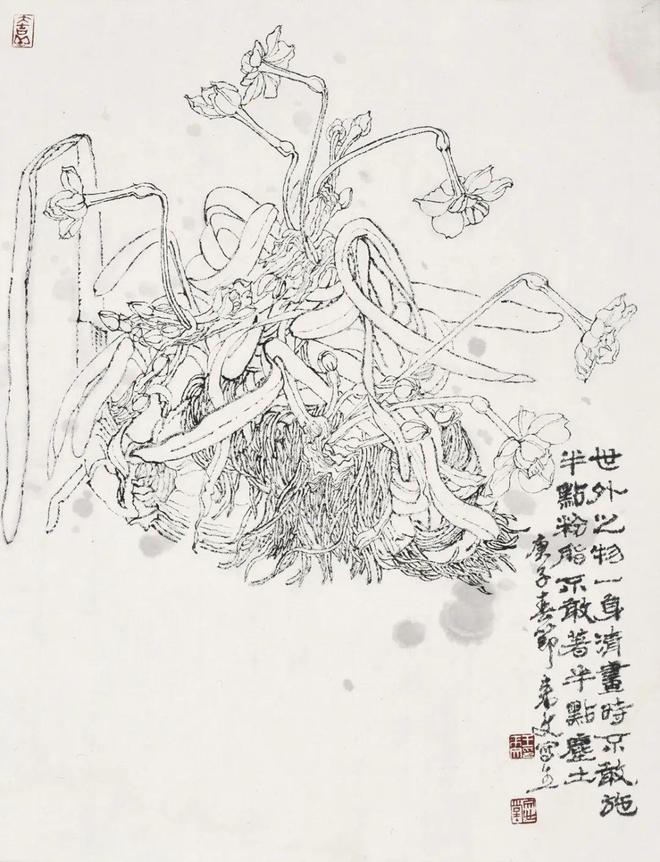 世外之物一身清畫時不敢施
半點粉脂不敢著半點塵土
庚子春節